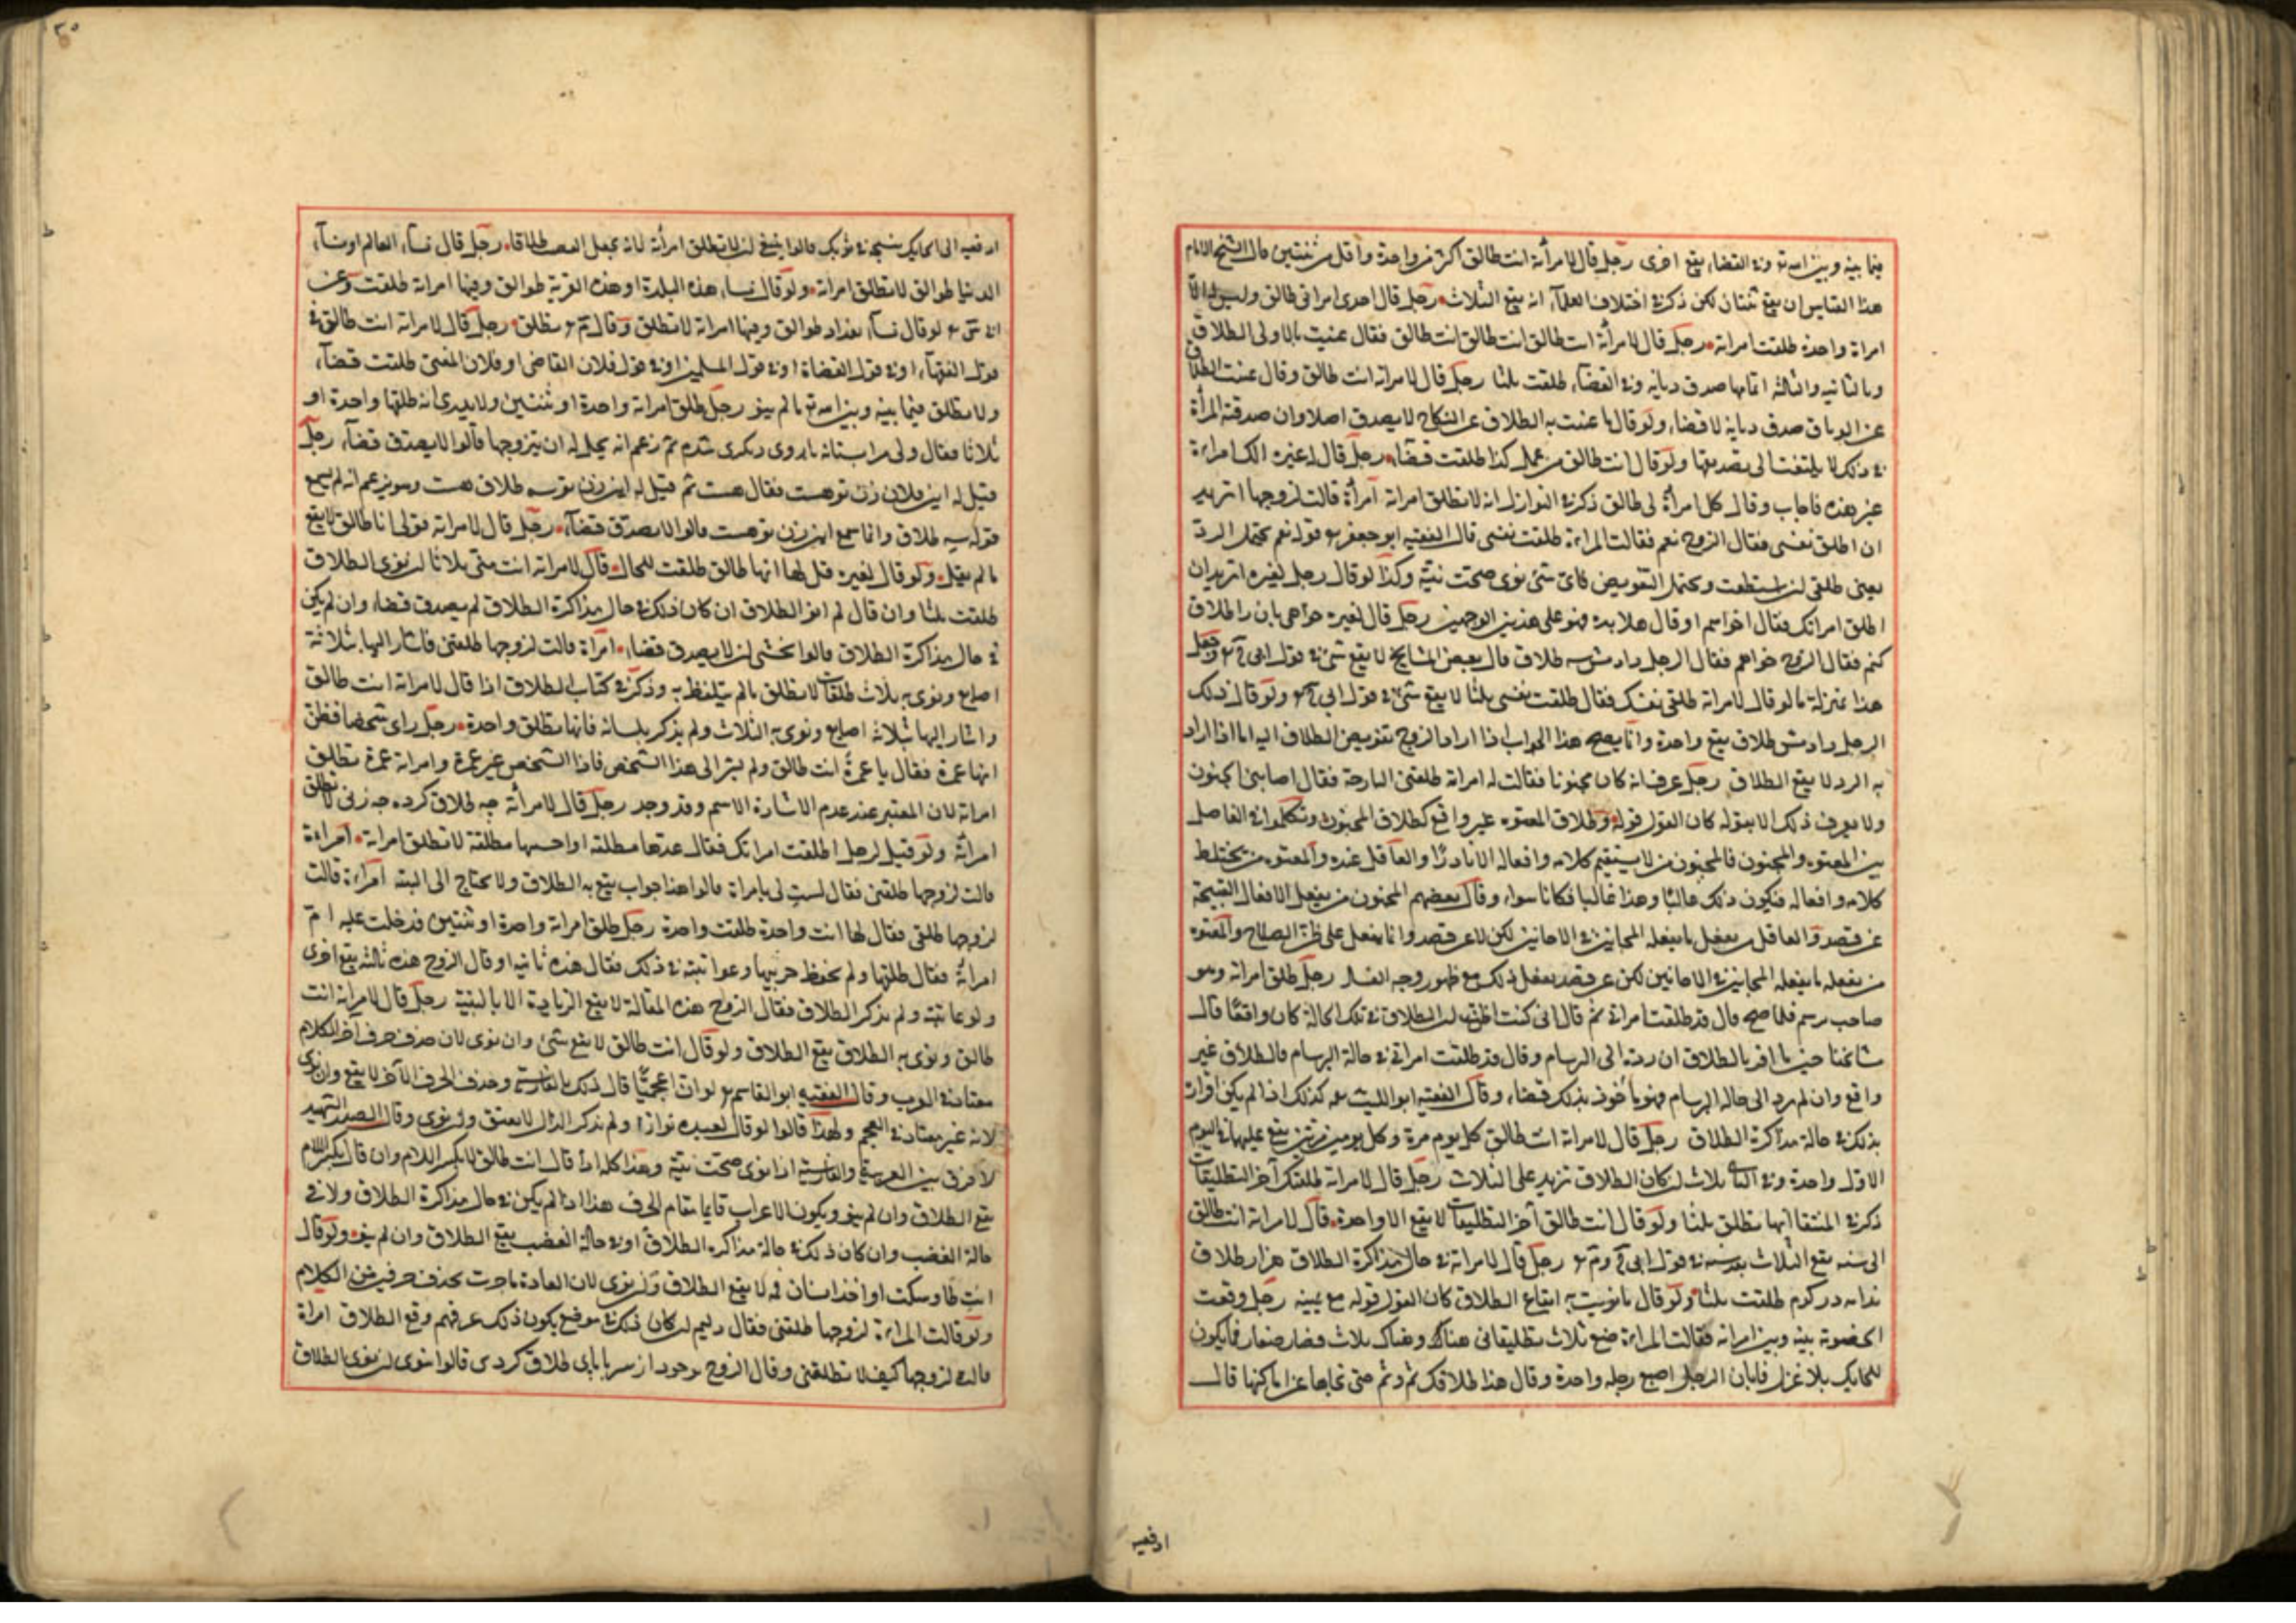 فيما بينه وبين الله تع وفى القضاء يقع اخرى رجل قال لامرأته انت طالق اكثر من واحدة واقل من ثنتين قال الشيخ الامام
هذا القياس ان يقع ثنتان لكن ذكر فى اختلاف العلماء انه يقع الثلاث رجل قال احدى امراتى طالق وليس له الا
امراة واحدة طلقت امراته رجل قال لامرأته انت طالق انت طالق انت طالق فقال عنيت بالاولى الطلاق
وبالثانية والثالثة افهامها صدق ديانة وفى القضاء طلقت ثلثا رجل قال لامراته انت طالق وقال عنيت الطلاق
عن الوثاق صدق ديانة لا قضاء ولو قال ما عنيت به الطلاق عن النكاح لا يصدق اصلا وان صدقته المرأة
فى ذلك لا يلتفت الى تصديقها ولو قال انت طالق من عمل كذا طلقت قضاء رجل قال له غيره الك امراة
غير هذه فاجاب وقال كل امرأة لى طالق ذكر فى النوازل انه لا تطلق امراته امرأة قالت لزوجها اتريد
ان اطلق نفسى فقال الزوج نعم فقالت المراة طلقت نفسى قال الفقيه ابو جعفر قوله نعم يحتمل الرد
يعنى طلقى ان استطعت ويحتمل التفويض فاى شئ نوى صحت نيته وكذا لو قال رجل لغيره اتريد ان
اطلق امراتك فقال فهو على هذين الوجهين رجل قال لغيره خواهى تا زن را طلاق
كنم فقال الزوج خواهم فقال الرجل دادمش سه طلاق قال بعض المشايخ لا يقع شئ فى قول ابى ح وجعل
هذا بمنزلة ما لو قال لامراته طلقى نفسك فقال طلقت نفسى ثلثا لا يقع شئ فى قول ابى ح ولو قال ذلك
الرجل دادمش طلاق يقع واحدة وانما يصح هذا الجواب اذا اراد الزوج تفويض الطلاق اليه اما اذا اراد
به الرد لا يقع الطلاق رجل عرف انه كان مجنونا فقالت له امراته طلقتنى البارحة فقال اصابنى الجنون
ولا يعرف ذلك الا بقوله كان القول قوله وطلاق المعتوه غير واقع كطلاق المجنون وتكلموا فى الفاصل
بين المعتوه والمجنون فالمجنون من لا يستقيم كلامه وافعاله الا نادرا والعاقل ضده والمعتوه من يختلط
كلامه وافعاله فيكون ذلك غالبا وهذا غالبا فكانا سواء وقال بعضهم المجنون من يفعل الافعال القبيحة
عن قصد والعاقل من يفعل ما يفعله المجانين فى الاحايين لكن لا عن قصد وانما يفعل على ظن الصلاح والمعتوه
من يفعله ما يفعله المجانين فى الاحايين لكن عن قصد يفعل ذلك مع ظهور وجه الفساد رجل طلق امراته وهو
صاحب برسام فلما صح قال قد طلقت امراتى ثم قال انى كنت اظن ان الطلاق فى تلك الحالة كان واقعا قال
مشايخنا حين ما اقر بالطلاق ان رده الى البرسام وقال قد طلقت امراتى فى حالة البرسام فالطلاق غير
واقع وان لم يرد الى حالة البرسام فهو مأخوذ بذلك قضاء وقال الفقيه ابو الليث كذلك اذا لم يكن اقراره
بذلك فى حالة مذاكرة الطلاق رجل قال لامراته انت طالق كل يوم مرة وكل يومين مرتين يقع عليها فى اليوم
الاول واحدة وفى الثانى ثلاث لو كان الطلاق تزيد على الثلاث رجل قال لامراته طلقتك آخر التطليقات
ذكر فى المنتقا انها تطلق ثلثا ولو قال انت طالق آخر التطليقات لا يقع الا واحدة قال لامراته انت طالق
الى سنة يقع الثلاث بعد سنة فى قول ابى ح و م رجل قال لامراته فى حال مذاكرة الطلاق هزار طلاق
بدامنت در كردم طلقت ثلثا ولو قال ما نويت به ايقاع الطلاق كان القول قوله مع يمينه رجل وقعت
الخصومة بينه وبين امراته فقالت المراة ضع ثلاث تطليقاتى هناك وهناك ثلاث قصار صغار فما يكون
للحايك بلا غزل فابان الرجل اصبع رجله واحدة وقال هذا طلاقك ثم وثم حتى نحاها عن اماكنها قال
ادفعيه
ادفعيه الى الحايك ينسجه فى ثوبك قالوا ينبغى ان لا تطلق امرأته لانه يجعل القصب طلاقا رجل قال نساء العالم او نساء
الدنيا طوالق لا تطلق امراته ولو قال نساء هذه البلدة او هذه القرية طوالق وفيها امراته طلقت وعن
لو قال نساء بغداد طوالق وفيها امراته لا تطلق وقال م تطلق رجل قال لامراته انت طالق فى
قول الفقهاء او فى قول القضاة او فى قول المسلمين او فى قول فلان القاضى او فلان المفتى طلقت قضاء
ولا تطلق فيما بينه وبين الله تع ما لم ينو رجل طلق امراته واحدة او ثنتين ولا يدرى انه طلقها واحدة او
ثلاثا فقال ثم زعم انه يحل له ان يتزوجها قالوا لا يصدق قضاء رجل
قيل له اين فلان زن تو هست فقال هست ثم قيل له اين زن تو سه طلاق هست وهو يزعم انه لم يسمع
قوله سه طلاق وانما سمع اين زن تو هست قالوا لا يصدق قضاء رجل قال لامراته قولى انا طالق لا يقع
ما لم تقل ولو قال لغيره قل لها انها طالق طلقت للحال قال لامراته انت منى ثلاثا ان نوى الطلاق
طلقت ثلثا وان قال لم انو الطلاق ان كان ذلك فى حال مذاكرة الطلاق لم يصدق قضاء وان لم يكن
فى حال مذاكرة الطلاق قالوا يخشى ان لا يصدق قضاء امراة قالت لزوجها طلقنى فاشار اليها بثلاثة
اصابع ونوى به ثلاث طلقات لا تطلق ما لم يتلفظ به وذكر فى كتاب الطلاق اذا قال لامراته انت طالق
واشار اليها بثلاثة اصابع ونوى به الثلاث ولم يذكر بلسانه فانها تطلق واحدة رجل راى شخصا فظن
انها عمرة فقال يا عمرة انت طالق ولم يشر الى هذا الشخص فاذا الشخص غير عمرة وامراته عمرة تطلق
امراته لان المعتبر عند عدم الاشارة الاسم وقد وجد رجل قال لامرأته چه طلاق كرده چه زنى لا تطلق
امرأته ولو قيل لرجل اطلقت امراتك فقال عدها مطلقة او احسبها مطلقة لا تطلق امراته امراة
قالت لزوجها طلقنى فقال لست لى بامراة قالوا هذا جواب يقع به الطلاق ولا يحتاج الى النية امراة قالت
لزوجها طلقنى فقال لها انت واحدة طلقت واحدة رجل طلق امراته واحدة او ثنتين فدخلت عليه ام
امرأته فقال طلقتها ولم تحفظ حق ابيها وعاتبته فى ذلك فقال هذه ثانية او قال الزوج هذه ثالثة يقع اخرى
ولو عاتبته ولم يذكر الطلاق فقال الزوج هذه المقالة لا يقع الزيادة الا بالنية رجل قال لامراته انت
طالق ونوى به الطلاق يقع الطلاق ولو قال انت طالق لا يقع شئ وان نوى لان حذف حرف آخر الكلام
معتاد فى العرب وقال الفقيه ابو القاسم لو ان اعجميا قال ذلك بالفارسية وحذف الحرف الآخر لا يقع وان نوى
لانه غير معتاد فى العجم ولهذا قالوا لو قال لعبده توازا ولم يذكر الدال لا يعتق وان نوى وقال الصدر الشهيد
لا فرق بين العربية والفارسية اذا نوى صحت نيته وهذا كله اذا قال انت طالق لا بكسر اللام وان قال بكسر اللام
يقع الطلاق وان لم ينو ويكون الاعراب قايما مقام الحرف هذا اذا لم يكن فى حال مذاكرة الطلاق ولا فى
حالة الغضب وان كان ذلك فى حالة مذاكرة الطلاق او فى حالة الغضب يقع الطلاق وان لم ينو ولو قال
انت طا وسكت او اخذ انسان فمه لا يقع الطلاق وان نوى لان العادة ما جرت بحذف حرفين من الكلام
ولو قالت المراة لزوجها طلقنى فقال دليم ان كان ذلك فى موضع يكون ذلك عرفهم وقع الطلاق امراة
قالت لزوجها كيف لا تطلقنى وقال الزوج تو خود از سر تا پاى طلاق كردى قالوا ان نوى الطلاق